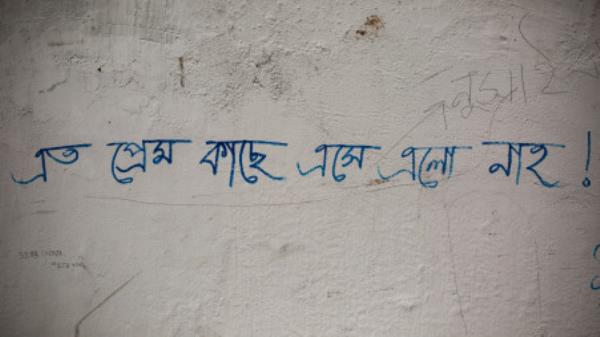 এত প্রেম কাছে এসে এলো নাহ !